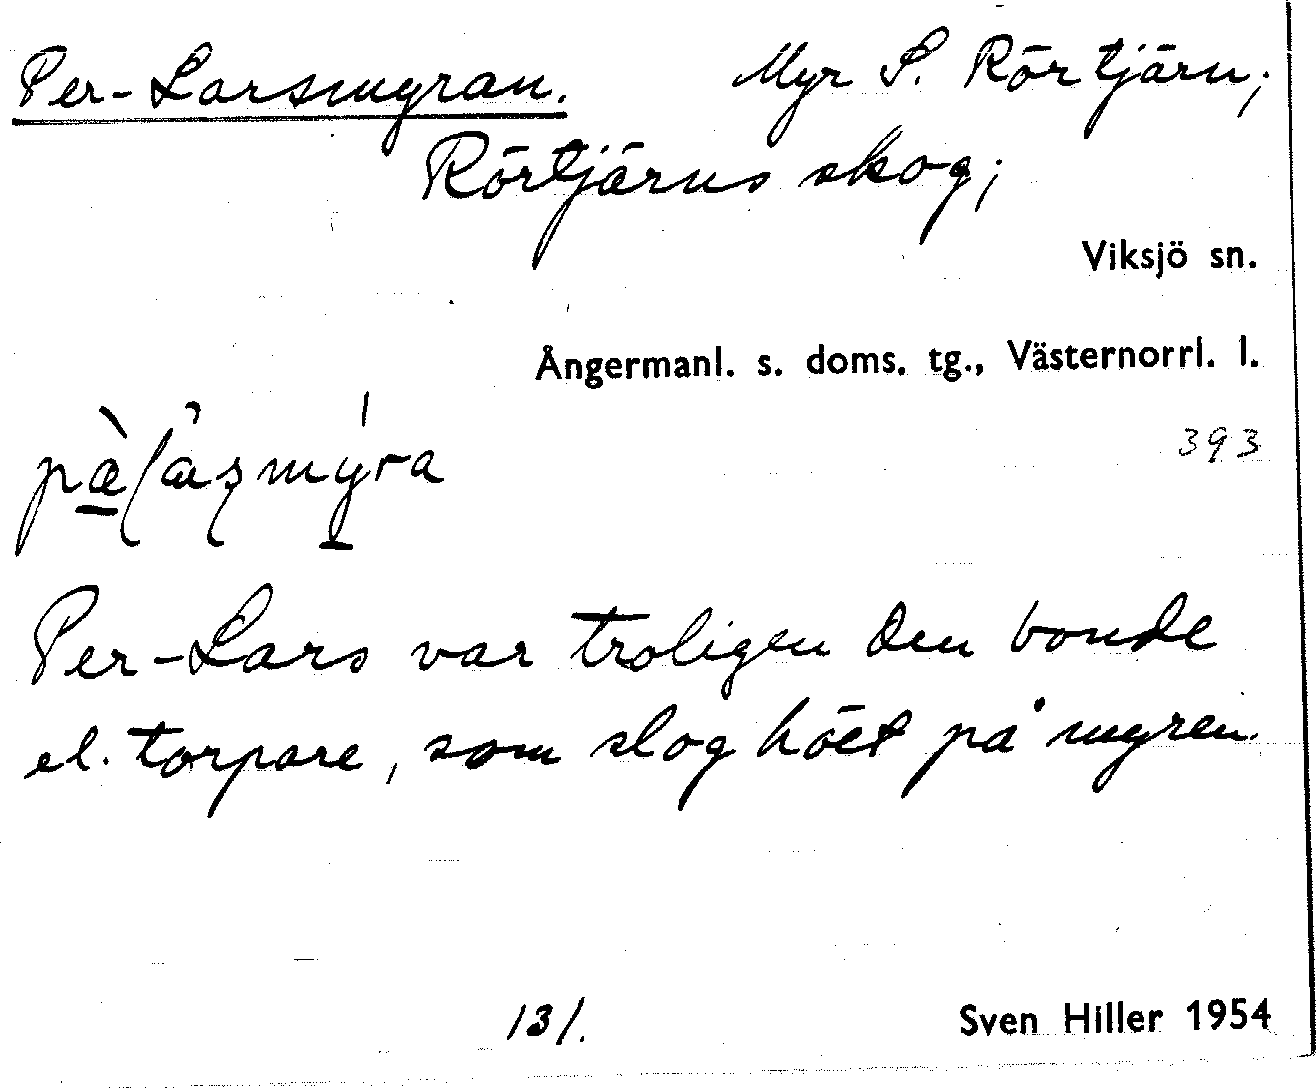 Per-Larsmyran. Myr S. Rörtjärn;
Rörtjärns skog;
Viksjö sn.
Ångermanl. s. doms. tg., Västernorrl. l.
393
Per-Lars var troligen den bonde
el. torpare, som slog höet på myren.
131.
Sven Hiller 1954